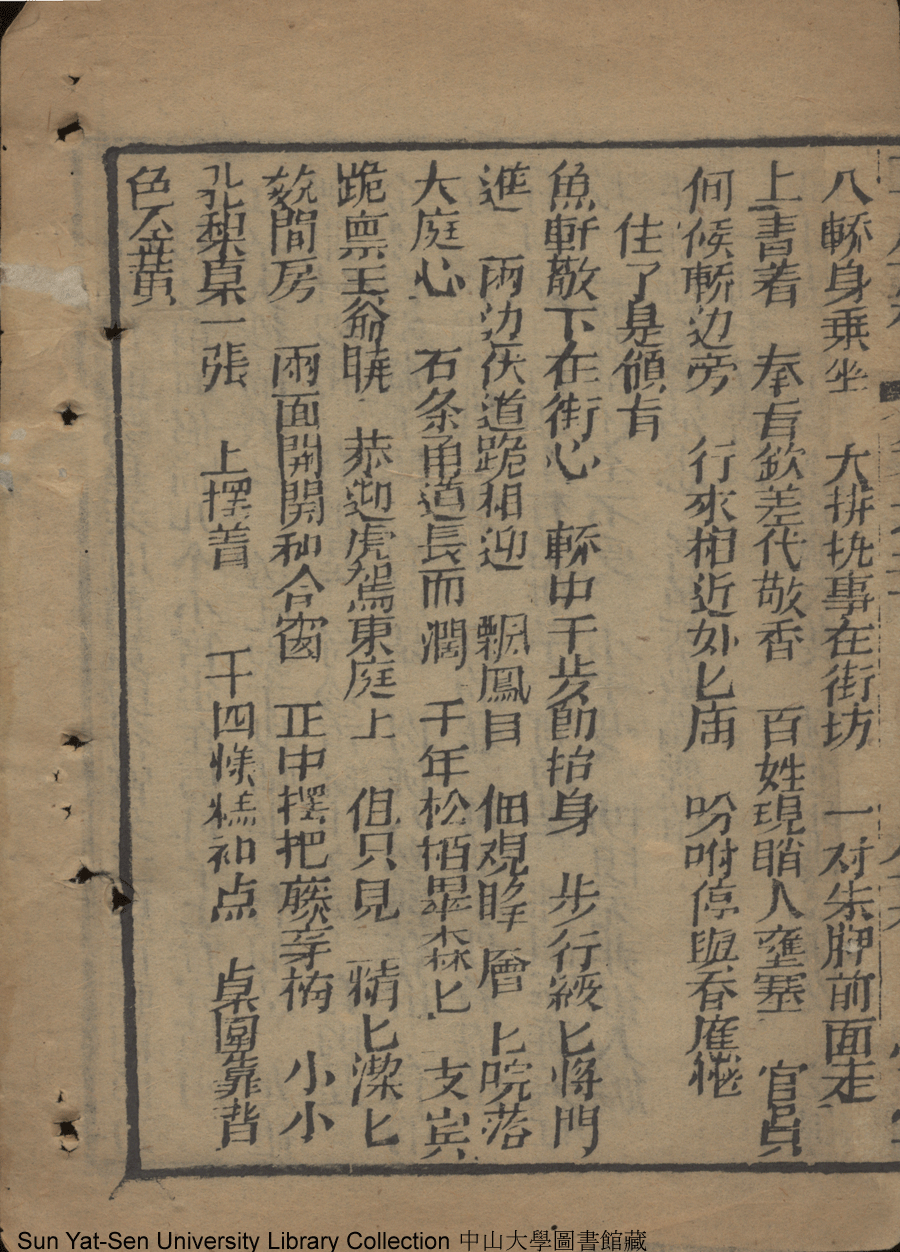 八轎身乘坐　大排执事在街坊　一对朱牌前面走
上書着　奉旨欽差代敬香　百姓現睄人壅塞　官員
伺候轎边旁　行來相近如匕庙　吩咐停與眷應
住了是傾肯
魚軒敬下在街心　轎中千步即抬身　步行緩匕將門
進　兩边伏道跪相迎　飄鳳目　佃观睁　層匕院落
大庭心　石条甬道長而濶　千年松栢翠森匕　支宾
跪禀王爺曉　恭迎虎駕東庭上　但只見　精匕潔匕
数間房　兩面開開和合窗　正中摆把藤穿椅　小小
孔梨桌一張　上摆着　千四樣糕和点　桌圍靠背
色全黄
Sun Yat-Sen University Library Collection 中山大學圖書館藏